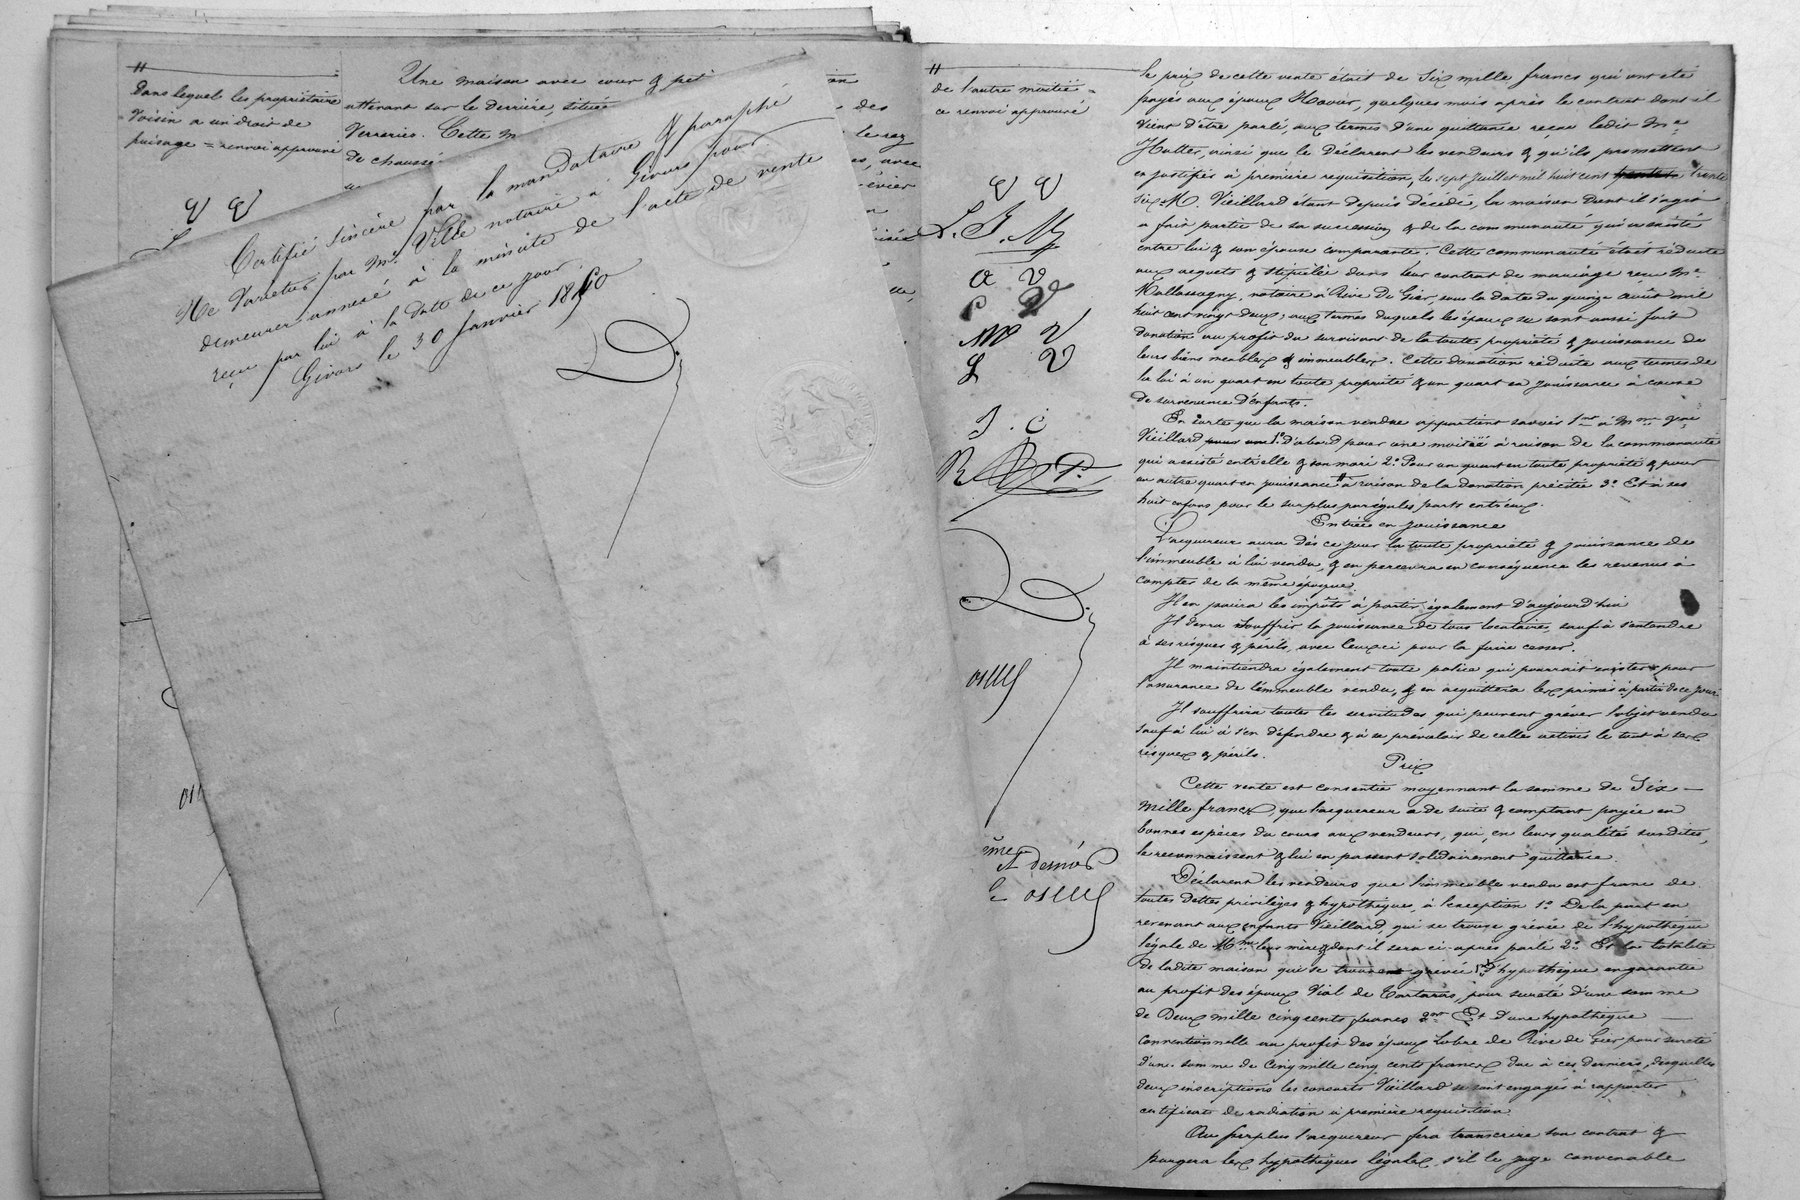 dans lequel les propriétaire
Voisin a un droit de
puisage = renvoi approuvé
V V
Une maison avec cour & peti
attenant sur le derrière, située
Verreries. Cette m
de chaussé
des
le rez
avec
évier
Certifié sincère par la mandataire & paraphé
Ne Varietur par Me Ville notaire à Givors pour
demeurer annexé à la minute de l'acte de vente
reçu par lui à la date de ce jour.
Givors le 30 Janvier 1860
de l'autre moitié =
ce renvoi approuvé
V V
L. J. M
A V
C V
M V
L V
J. C
R B P.
le prix de cette vente était de Six mille francs qui ont été
payés aux époux Havier, quelques mois après le contrat dont il
vient d'être parlé, aux termes d'une quittance reçue ledit Me
Hutter, ainsi que le déclarent les vendeurs & qu'ils promettent
en justifier à première requisition, les sept Juillet mil huit cent trente
six. M. Vieillard étant depuis décédé, la maison dont il s'agit
a fait partie de sa succession & de la communauté qui a existé
entre lui & son épouse comparante. Cette communauté était réduite
aux acquets & stipulée dans leur contrat de mariage reçu Me
notaire à Rive De Gier, sous la date du quinze Août mil
huit cent vingt deux; aux termes duquels les époux se sont aussi fait
donation au profit du survivant de la toute propriété & jouissance de
leurs biens meubles & immeubles. Cette donation réduite aux termes de
la loi à un quart en toute propriété & un quart en jouissance à cause
de survenance d'enfants.
En sorte que la maison vendue appartient savoir 1ent à Mme Vve
Vieillard 1° D'abord pour une moitié à raison de la communauté
qui a existé entr'elle & son mari 2° Pour un quart en toute propriété & pour
un autre quart en jouissance à raison de la donation précitée 3° Et à ses
huit enfans pour le surplus par égales parts entr'eux.
Entrée en jouissance
L'acquereur aura dès ce jour la toute propriété & jouissance de
l'immeuble à lui vendu, & en percevra en conséquence les revenus à
compter de la même époque.
Il en paiera les impôts à partir également d'aujourd'hui
Il devra souffrir la jouissance de tous locataires, sauf à s'entendre
à ses risques & périls, avec ceux ci pour la faire cesser.
Il maintiendra également toute police qui pourrait exister pour
l'assurance de l'immeuble vendu, & en acquittera les primes à partir de ce jour
Il souffrira toutes les servitudes qui peuvent gréver l'objet vendu
sauf à lui à s'en défendre & à se prévaloir de celles actives le tout à ses
risques & périls.
Prix
Cette vente est consentie moyennant la somme de Six
mille francs, que l'acquereur a de suite & comptant payée en
bonnes espèces du cours aux vendeurs, qui, en leurs qualités susdites,
le reconnaissent & lui en passent solidairement quittance.
Déclarent les vendeurs que l'immeuble vendu est franc de
toutes dettes privilèges & hypothèque, à l'exception 1° De la part en
revenant aux enfants Vieillard, qui se trouve grévée de l'hypothèque
légale de Mme leur mère & dont il sera ci-après parlé 2° Et la totalité
de ladite maison qui se trouve grévée 1ent d'hypothèque en garantie
au profit des époux Vial de Tartaras, pour sureté d'une somme
de Deux mille cinq cents francs 2ent Et d'une hypothèque
conventionnelle au profit des époux de Rive de Gier pour sureté
d'une somme de Cinq mille cinq cents francs due à ces derniers, desquelles
deux inscriptions les consorts Vieillard se sont engagés à rapporter
certificats de radiation à première requisition
Au surplus l'acquereur fera transcrire son contrat &
purgera les hypothèques légales, s'il le juge convenable